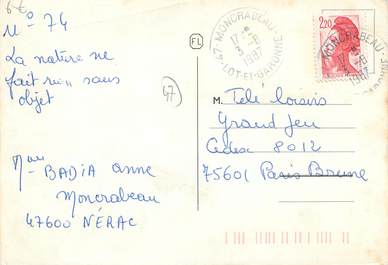 6€
N° 74
La nature ne
fait rien sans
objet
47
Mme BADIA Anne
Moncrabeau
47600 NÉRAC
FL
47 - MONCRABEAU
17 H
3 - 8
1987
LOT-ET-GARONNE
2,20
MONCRABEAU
17 H
3 - 8
1987
M. Télé loisirs
Grand Jeu
Cedex 8012
75601 Paris Brune